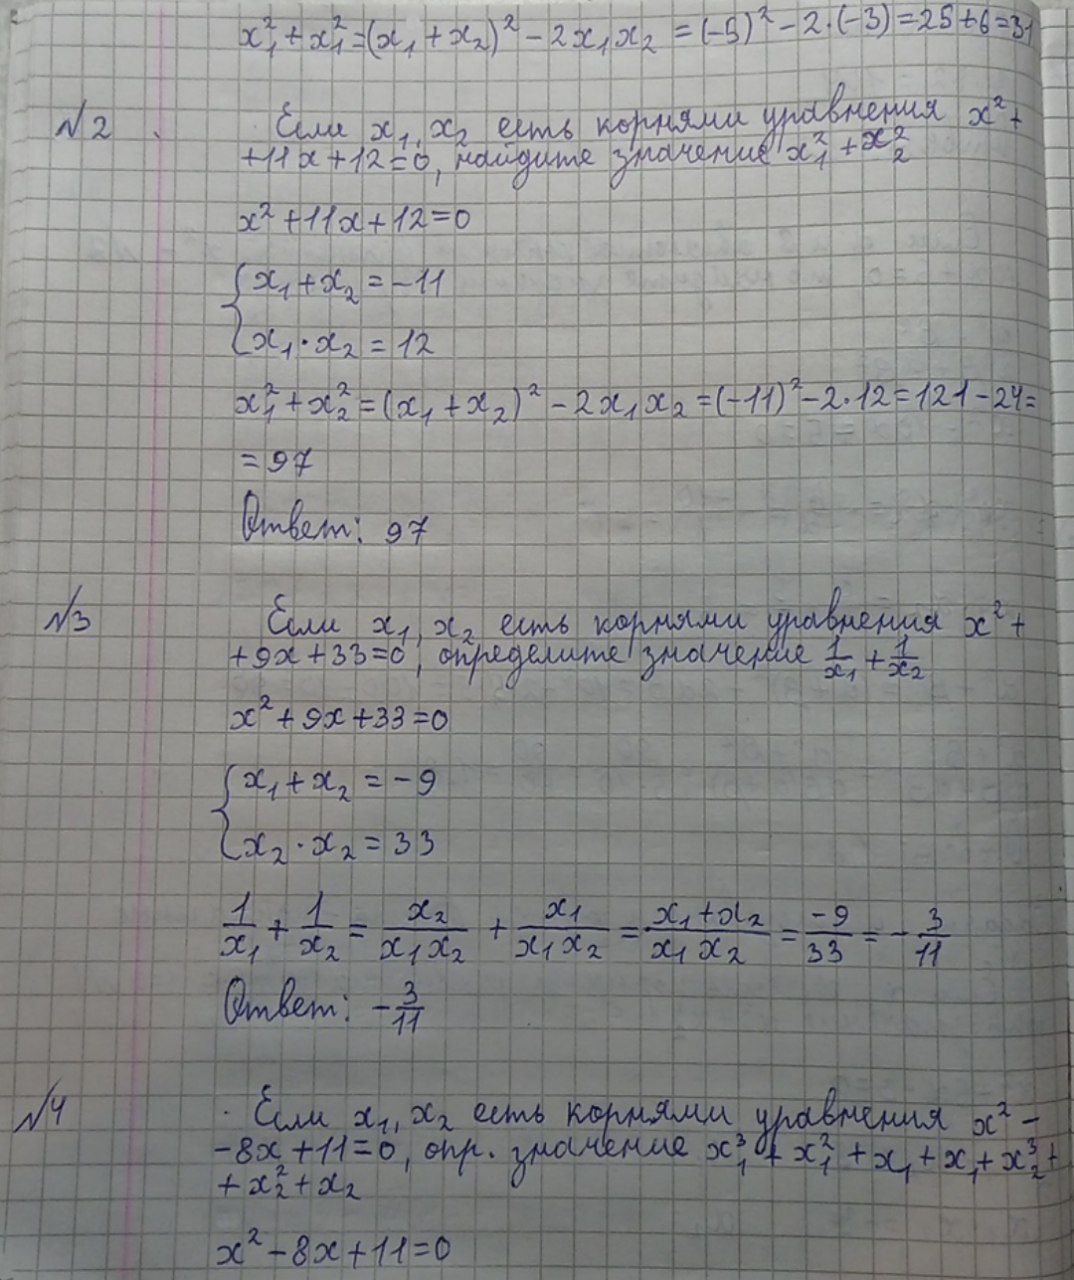 x₁² + x₁² = (x₁ + x₂)² - 2x₁x₂ = (-5)² - 2·(-3) = 25 + 6 = 31
№2 Если x₁, x₂ есть корнями уравнения x² +
+ 11x + 12 = 0, найдите значение x₁² + x₂²
x² + 11x + 12 = 0
{ x₁ + x₂ = -11
x₁ · x₂ = 12
x₁² + x₂² = (x₁ + x₂)² - 2x₁x₂ = (-11)² - 2·12 = 121 - 24 =
= 97
Ответ: 97
№3 Если x₁, x₂ есть корнями уравнения x² +
+ 9x + 33 = 0, определите значение 1/x₁ + 1/x₂
x² + 9x + 33 = 0
{ x₁ + x₂ = -9
x₂ · x₂ = 33
1/x₁ + 1/x₂ = x₂/x₁x₂ + x₁/x₁x₂ = x₁+x₂/x₁x₂ = -9/33 = -3/11
Ответ: -3/11
№4 Если x₁, x₂ есть корнями уравнения x² -
- 8x + 11 = 0, опр. значение x₁³ + x₁² + x₁ + x₁ + x₂³ +
+ x₂² + x₂
x² - 8x + 11 = 0